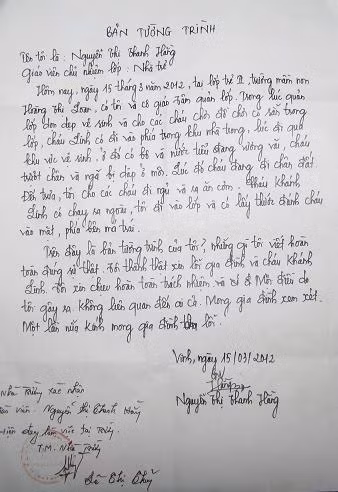 BẢN TƯỜNG TRÌNH
Tên tôi là: Nguyễn Thị Thanh Hằng
Giáo viên chủ nhiệm lớp: Nhà trẻ
Hôm nay, ngày 15 tháng 3 năm 2012, tại lớp trẻ II, trường mầm non
Hoàng Thị Loan, có tôi và cô giáo Vân quản lớp. Trong lúc quản
lớp dọn dẹp vệ sinh và cho các cháu chơi đồ chơi có sẵn trong
lớp, cháu Linh có đi vào phía trong khu nhà trong, lúc đi qua
khu vực vệ sinh, ở đó có bô và nước tiểu đang vương vãi, cháu
trượt chân và ngã bị dập ở môi. Lúc đó cháu đang đi chân đất.
Đến trưa, tôi cho các cháu đi ngủ và sợ ăn cơm. Cháu Khánh
Linh có chạy ra ngoài, tôi đi vào lớp và có lấy thước đánh cháu
vào mặt, phía bên má trái.
Trên đây là bản tường trình của tôi, những gì tôi viết hoàn
toàn đúng sự thật. Tôi thành thật xin lỗi gia đình và cháu Khánh
Linh. Tôi xin chịu hoàn toàn trách nhiệm và điều do
tôi gây ra. Không liên quan đến ai cả. Mong gia đình xem xét.
Một lần nữa kính mong gia đình tha lỗi.
Vinh, ngày 15/03/2012
Hằng
Nguyễn Thị Thanh Hằng
Nhà Trường xác nhận
Giáo viên: Nguyễn Thị Thanh Hằng
Hiện đang làm việc tại Trường.
T.M. Nhà Trường
Lê Thị Thuỷ